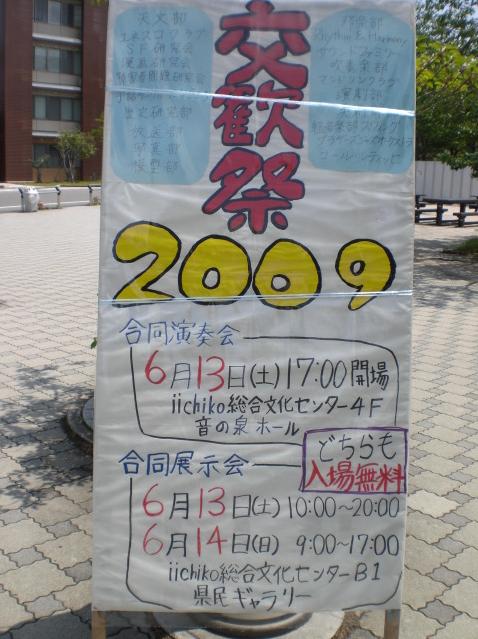 交歓祭
2009
天文部
ユネスコクラブ
SF研究会
漫画研究会
歴史研究部
放送部
写真部
模型部
Rhythm & Harmony
サウンドファミリー
吹奏楽部
マンドリンクラブ
演劇部
合同演奏会
6月13日(土)17:00開場
iichiko総合文化センター4F
音の泉ホール
どちらも
入場無料
合同展示会
6月13日(土)10:00~20:00
6月14日(日)9:00~17:00
iichiko総合文化センターB1
県民ギャラリー